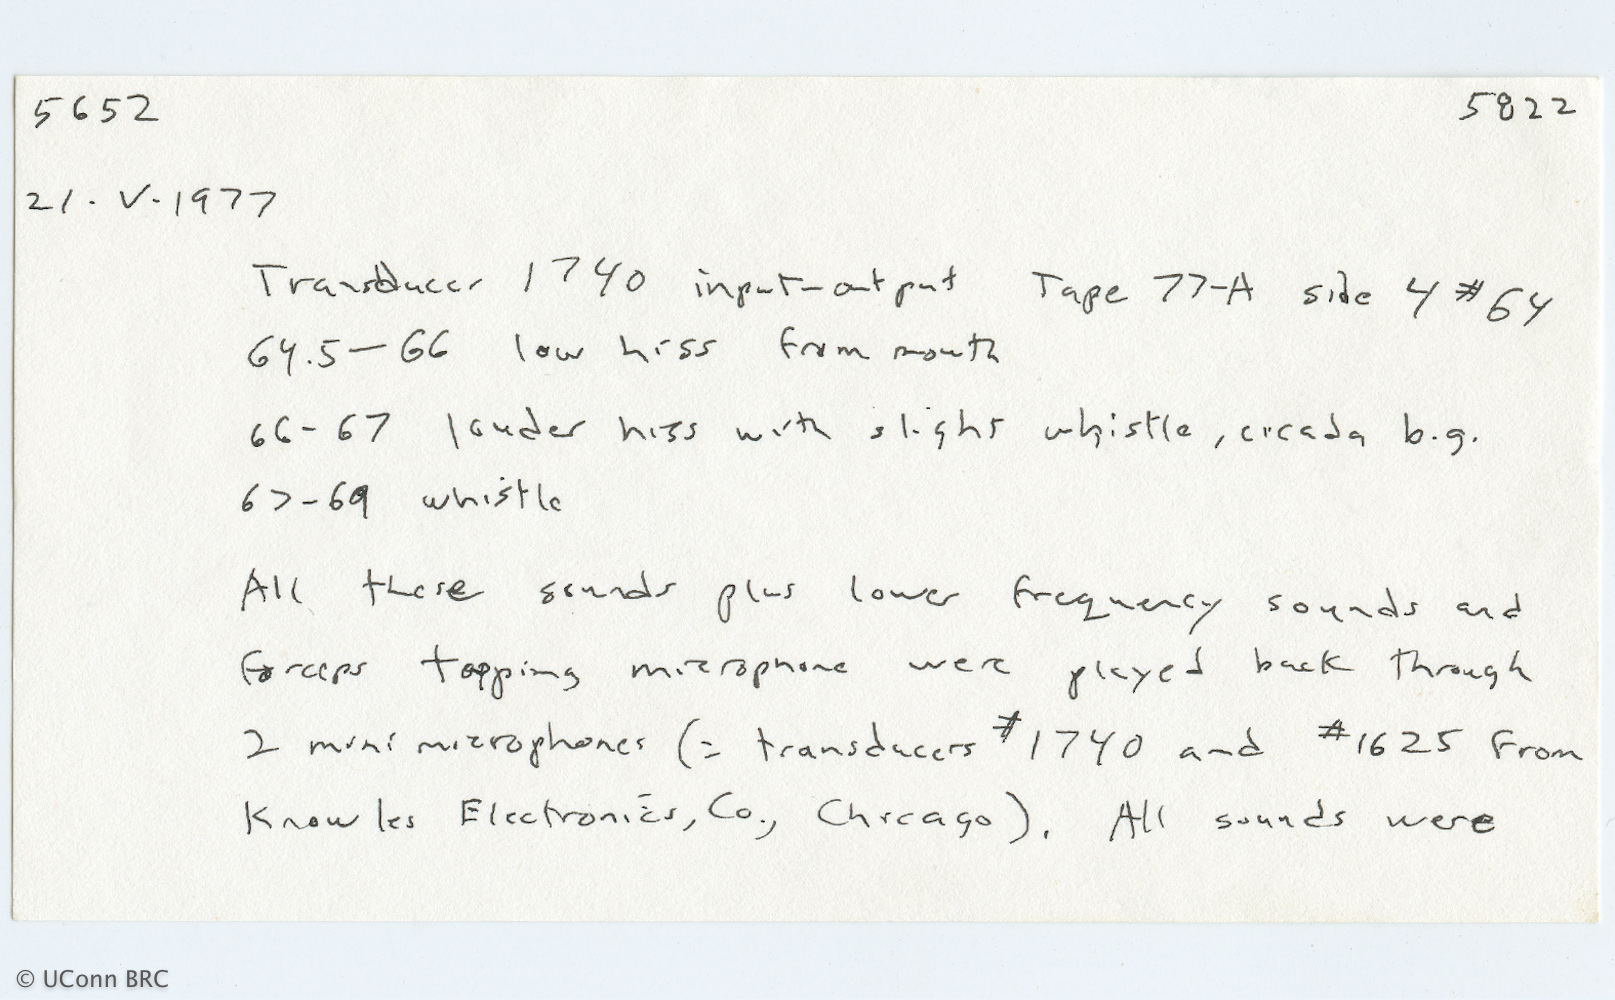 5652 5822
21. V. 1977
Transducer 1740 input-output Tape 77-A side 4 #64
64.5-66 low hiss from mouth
66-67 louder hiss with slight whistle, cicada b.g.
67-69 whistle
All these sounds plus lower frequency sounds and
forceps tapping microphone were played back through
2 mini microphones (= transducers #1740 and #1625 from
Knowles Electronics, Co., Chicago). All sounds were
© UConn BRC